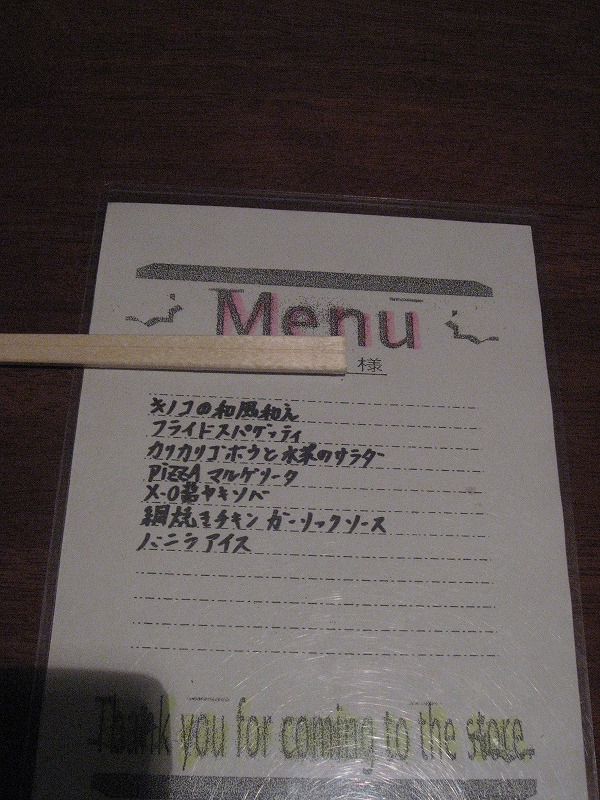 Menu
様
キノコの和風和え
フライドスパゲッティ
カリカリゴボウと水菜のサラダ
PiZZA マルゲリータ
X-O醤ヤキソバ
網焼きチキン ガーリックソース
バニラアイス
Thank you for coming to the store.